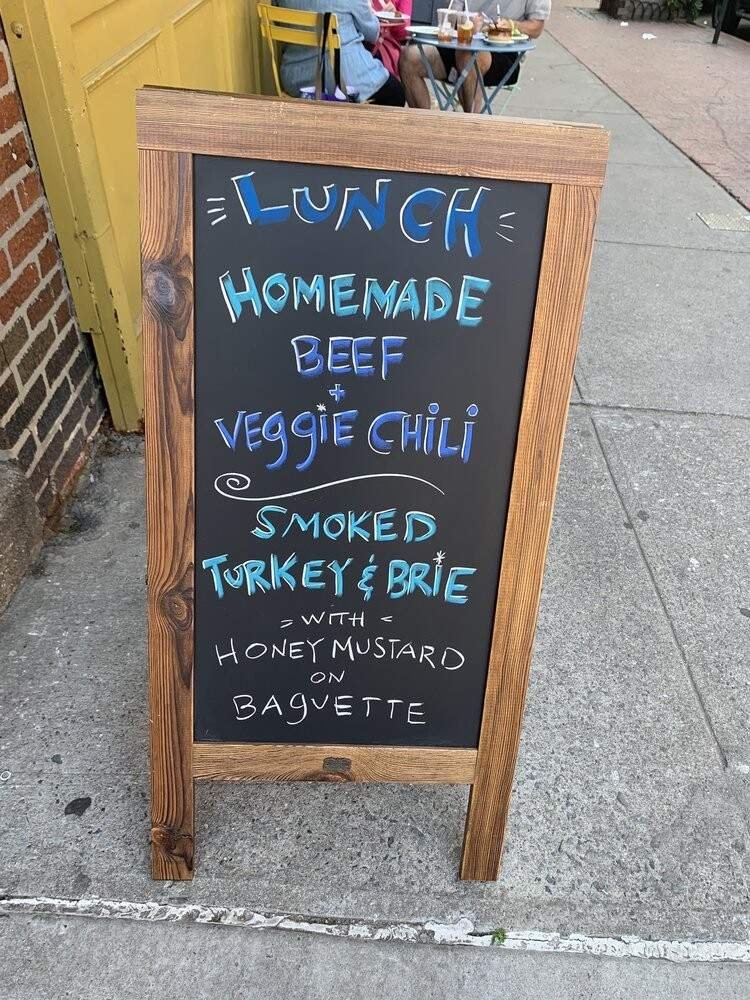 LUNCH
HOMEMADE
BEEF
+
VEggiE CHiLi
SMOKED
TURKEY & BRIE
= WITH =
HONEY MUSTARD
ON
BAgUETTE